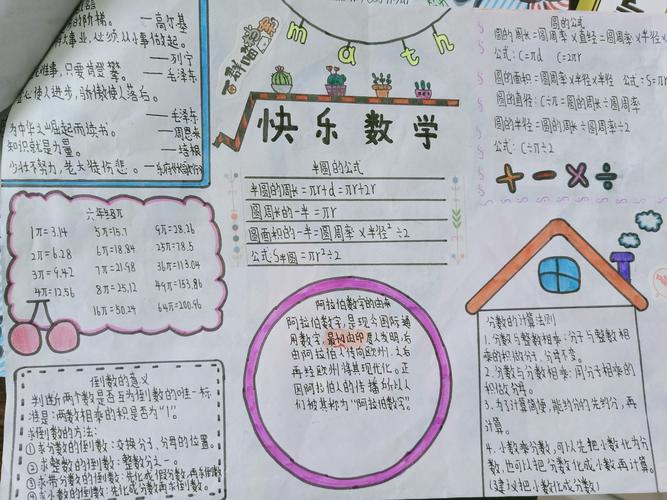 阶梯。 ——高尔基
事业，必须从小事做起。
——列宁
难事，只要肯登攀。
——毛泽东
使人进步，骄傲使人落后。
——毛泽东
为中华之崛起而读书。
——周恩来
知识就是力量。 ——培根
少壮不努力，老大徒伤悲。
math
快乐数学
半圆的公式
半圆的周长=πr+d=πr+2r
圆周长的一半=πr
圆面积的一半=圆周率×半径²÷2
公式:S半圆=πr²÷2
圆的公式
圆的周长=圆周率×直径=圆周率×半径×
公式:C=πd C=2πr
圆的面积=圆周率×半径×半径 公式:S=π
圆的直径:C÷π=圆的周长÷圆周率
圆的半径=圆的周长÷圆周率÷2
公式:C÷π÷2
+ - × ÷
1π=3.14 5π=15.7 9π=28.26
2π=6.28 6π=18.84 25π=78.5
3π=9.42 7π=21.98 36π=113.04
4π=12.56 8π=25.12 49π=153.86
16π=50.24 64π=200.96
阿拉伯数字的由来
阿拉伯数字,是现今国际通
用数字,最初由印度人发明,后
由阿拉伯人传向欧洲,之后
再经欧洲将其现代化。正
因阿拉伯人的传播,所以人
们被其称为"阿拉伯数字"。
倒数的意义
判断两个数是否互为倒数的唯一标
准是:两数相乘的积是否为"1"。
求倒数的方法:
①求分数的倒数:交换分子、分母的位置。
②求整数的倒数:整数分之一。
③求带分数的倒数:先化成假分数,再求倒数
④求小数的倒数:先化成分数再求倒数。
分数的计算法则
1.分数与整数相乘:分子与整数相
乘的积做分子,分母不变。
2.分数与分数相乘:用分子相乘的
积做分母。
3.为了计算简便,能约分的先约分,再
计算。
4.小数乘分数,可以先把小数化为分
数,也可以把分数化成小数再计算。
(建议把小数化成分数)